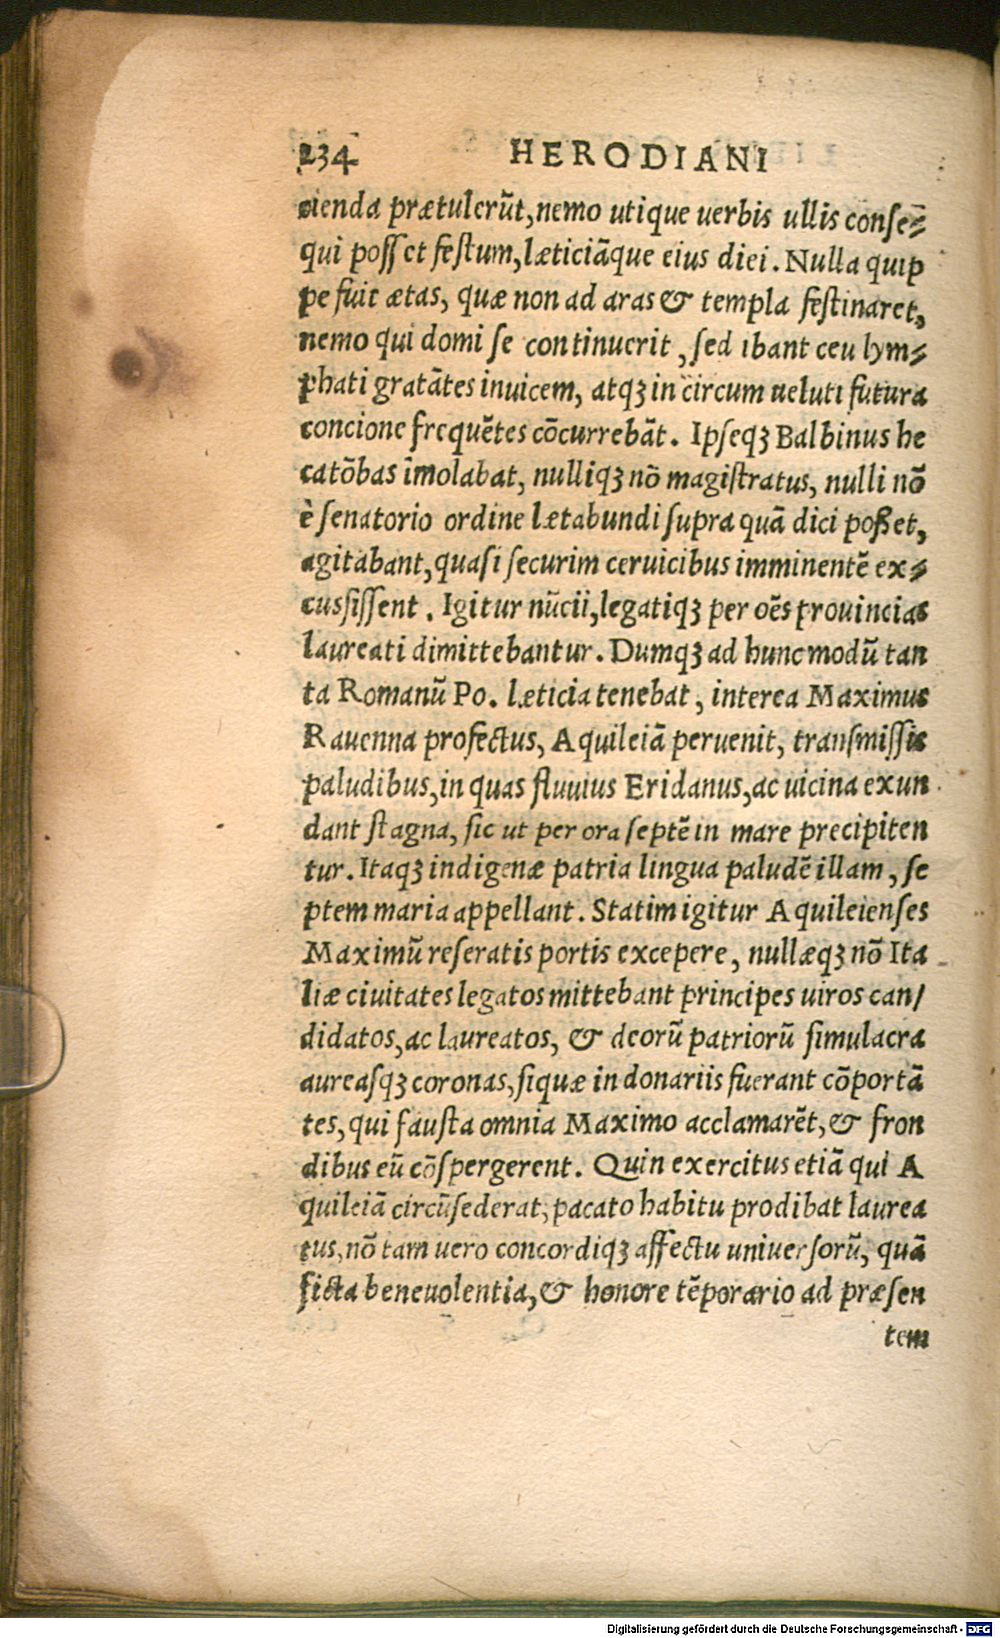 234 HERODIANI
cienda prætulerũt, nemo utique uerbis ullis conse⸗
qui posset festum, læticiãque eius diei. Nulla quip
pe fuit ætas, quæ non ad aras & templa festinaret,
nemo qui domi se continuerit, sed ibant ceu lym⸗
phati gratãtes inuicem, atqꝫ in circum ueluti futura
concione frequẽtes cõcurrebãt. Ipseqꝫ Balbinus he
catõbas ĩmolabat, nulliqꝫ nõ magistratus, nulli nõ
è senatorio ordine lætabundi supra quã dici posset,
agitabant, quasi securim ceruicibus imminentẽ ex⸗
cussissent. Igitur nũcii, legatiqꝫ per oẽs prouincias
laureati dimittebantur. Dumqꝫ ad hunc modũ tan
ta Romanũ Po. læticia tenebat, interea Maximus
Rauenna profectus, Aquileiã peruenit, transmissis
paludibus, in quas fluuius Eridanus, ac uicina exun
dant stagna, sic ut per ora septẽ in mare precipiten
tur. Itaqꝫ indigenæ patria lingua paludẽ illam, se
ptem maria appellant. Statim igitur Aquileienses
Maximũ reseratis portis excepere, nullæqꝫ nõ Ita
liæ ciuitates legatos mittebant principes uiros can/
didatos, ac laureatos, & deorũ patriorũ simulacra
aureasqꝫ coronas, siquæ in donariis fuerant cõportã
tes, qui fausta omnia Maximo acclamarẽt, & fron
dibus eũ cõspergerent. Quin exercitus etiã qui A
quileiã circũsederat, pacato habitu prodibat laurea
tus, nõ tam uero concordiqꝫ affectu uniuersorũ, quã
ficta beneuolentia, & honore tẽporario ad præsen
tem
Digitalisierung gefördert durch die Deutsche Forschungsgemeinschaft - DFG